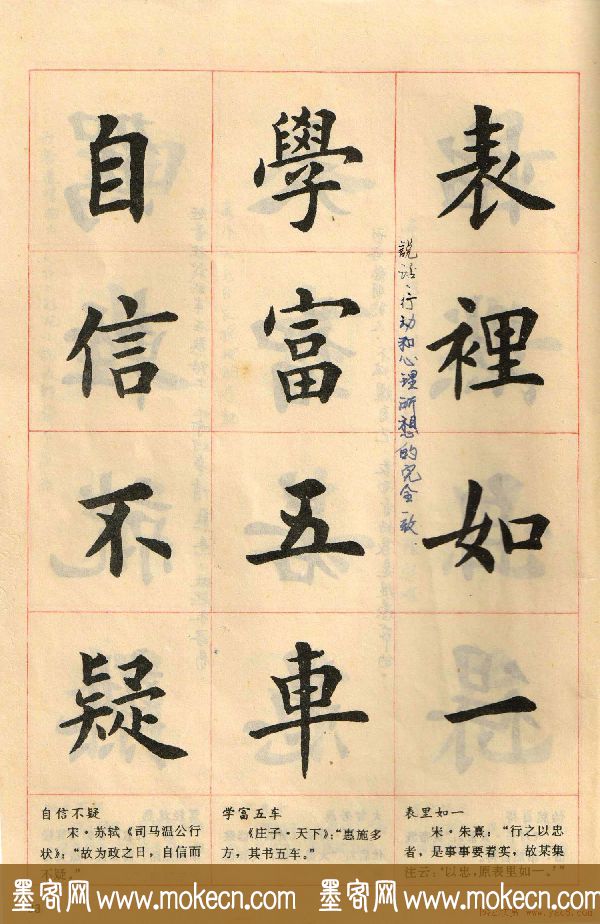 表裡如一
説话、行动和心理所想的完全一致.
學富五車
自信不疑
表里如一
宋·朱熹：“行之以忠
者，是事事要着实，故某集
注云：‘以忠，原表里如一。’”
学富五车
《庄子·天下》：“惠施多
方，其书五车。”
自信不疑
宋·苏轼《司马温公行
状》：“故为政之日，自信而
不疑。”
墨客网 www.mokecn.com 墨客网 www.mokecn.com